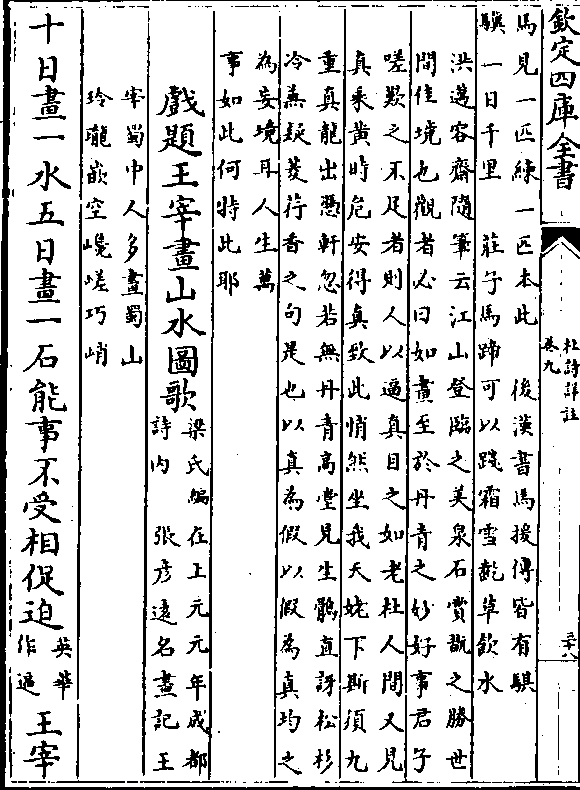 欽定四庫全書
杜詩詳註
卷九
三十八
馬見一匹練一匹本此　後漢書馬援傳皆有騏
驥一日千里　莊子馬蹄可以踐霜雪齕草飲水
洪邁容齋隨筆云江山登臨之美泉石賞翫之勝世
間佳境也觀者必曰如畫至於丹青之妙好事君子
嗟歎之不足者則人以逼真目之如老杜人間又見
真乘黃時危安得真致此悄然坐我天姥下斯須九
重真龍出憑軒忽若無丹青高堂見生鶻直訝松杉
冷兼疑菱荇香之句是也以真為假以假為真均之
為妄境耳人生萬
事如此何特此耶
戲題王宰畫山水圖歌
梁氏編　在上元元年成都
詩內　張彥遠名畫記王
宰蜀中人多畫蜀山
玲瓏嵌空巉嵯巧峭
十日畫一水五日畫一石能事不受相促迫
英華
作逼
王宰